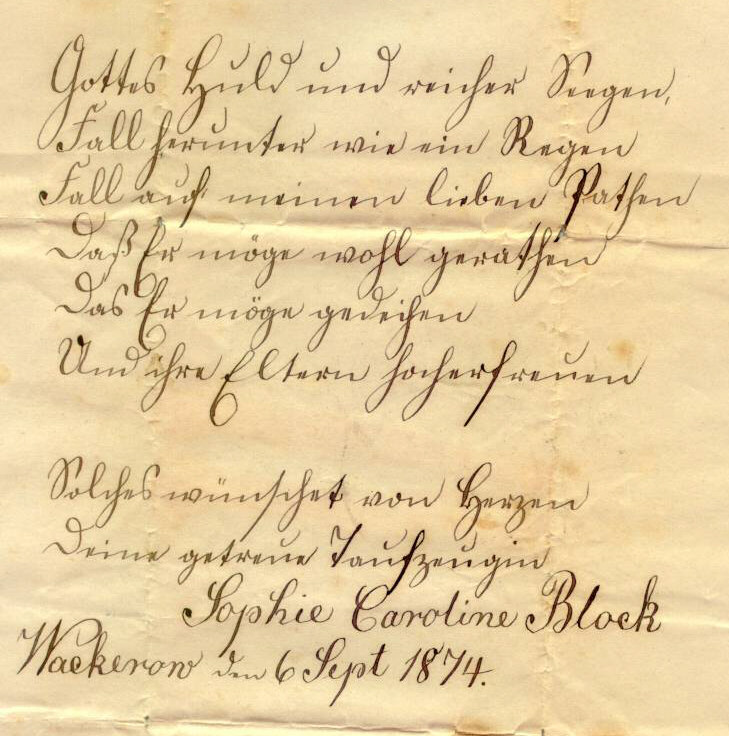 Gottes Huld und reicher Seegen,
Fall herunter wie ein Regen
Fall auf meinen lieben Pathen
Daß Er möge wohl gerathen
Das Er möge gedeihen
Und ihre Eltern hocherfreuen
Solches wünschet von Herzen
Deine getreue Taufzeugin
Sophie Caroline Block
Wackerow den 6 Sept 1874.